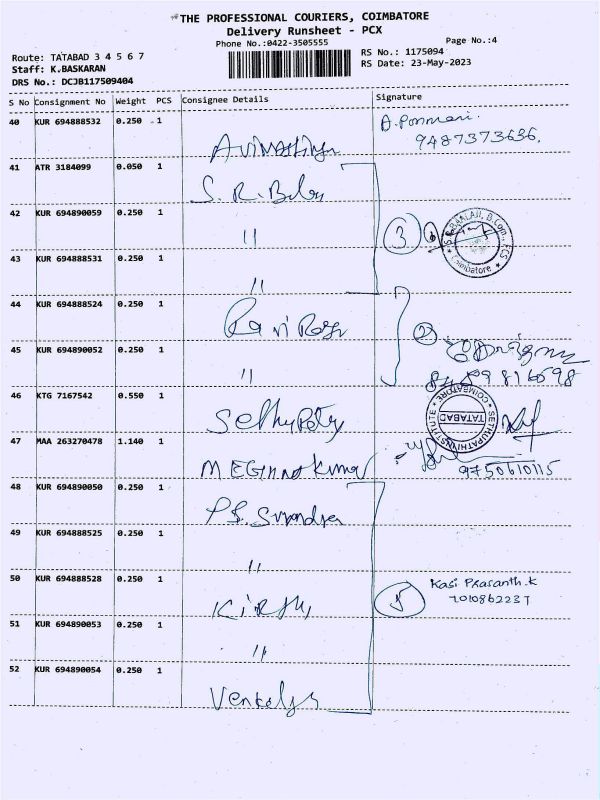 THE PROFESSIONAL COURIERS, COIMBATORE
Delivery Runsheet - PCX
Phone No.:0422-3505555
Page No.:4
Route: TATABAD 3 4 5 6 7
RS No.: 1175094
Staff: K.BASKARAN
RS Date: 23-May-2023
DRS No.: DCJB117509404
S No Consignment No Weight PCS Consignee Details Signature
40 KUR 694888532 0.250 1
9487373636.
41 ATR 3184099 0.050 1
S. R. Babu
42 KUR 694890059 0.250 1
"
3
Coimbatore
43 KUR 694888531 0.250 1
"
44 KUR 694888524 0.250 1
Ravi Raja
2
45 KUR 694890052 0.250 1
"
46 KTG 7167542 0.550 1
SETHUPATHI INSTITUTE
COIMBATORE
TATABAD
47 MAA 263270478 1.140 1
9750610115
48 KUR 694890050 0.250 1
49 KUR 694888525 0.250 1
"
50 KUR 694888528 0.250 1
5
Kasi Prasanth.K
7010862237
51 KUR 694890053 0.250 1
"
52 KUR 694890054 0.250 1